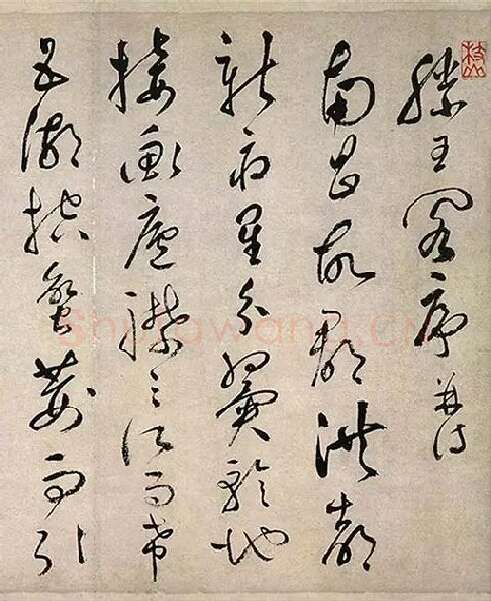 滕王閣序并詩
南昌故郡洪都
新府星分翼軫地
接衡廬襟三江而帶
五湖控蠻荊而引
枝山